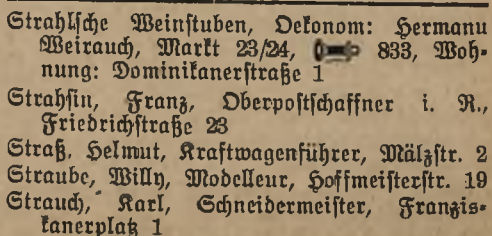 Strahlſche Weinſtuben, Oekonom: Hermanu
Weirauch, Markt 23/24, 833, Woh-
nung: Dominikanerſtraße 1
Strahſin, Franz, Oberpoſtſchaffner i. R.,
Friedrichſtraße 23
Straß, Helmut, Kraftwagenführer, Mälzſtr. 2
Straube, Willy, Modelleur, Hoffmeiſterſtr. 19
Strauch, Karl, Schneidermeiſter, Franzis-
kanerplatz 1